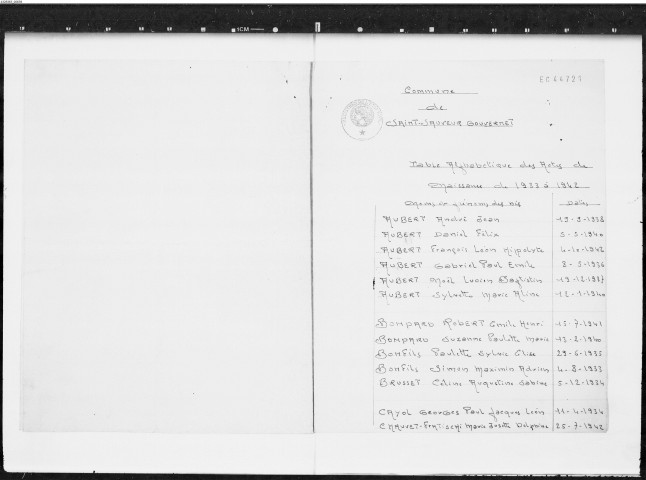 EC 44721
Commune
de
SAINT-SAUVEUR GOUVERNET
Table Alphabétique des Actes de
Naissance de 1933 à 1942
Noms et prénoms des nés Dates
AUBERT André Jean 19-9-1938
AUBERT Daniel Félix 5-5-1940
AUBERT François Léon Hippolyte 4-10-1942
AUBERT Gabriel Paul Emile 8-5-1936
AUBERT Noël Lucien Baptistin 19-12-1937
AUBERT Sylvette Marie Aline 12-1-1940
BOMPARD ROBERT Emile Henri 15-7-1941
BOMPARD Suzanne Paulette Marie 13-2-1940
BONFILS Paulette Sylvie Elise 29-6-1935
BONFILS Simon Maximin Adrien 4-8-1933
BRUSSET Céline Augustine Sabine 5-12-1934
CAYOL Georges Paul Jacques Léon 11-4-1934
CHAUVET-FRATISCHI Marie Josette Delphine 25-7-1942